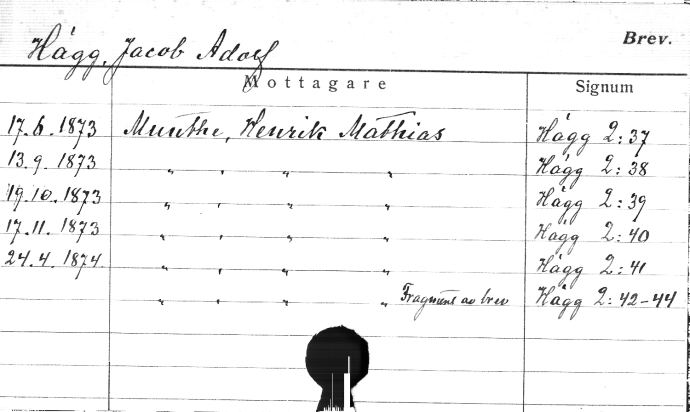 Hägg, Jacob Adolf Brev.
Mottagare Signum
17.6.1873 Munthe, Henrik Mathias Hägg 2:37
13.9.1873 „ , „ „ Hägg 2:38
19.10.1873 „ , „ „ Hägg 2:39
17.11.1873 „ , „ „ Hägg 2:40
24.4.1874. „ , „ „ Hägg 2:41
„ , „ „ Fragment av brev Hägg 2:42-44